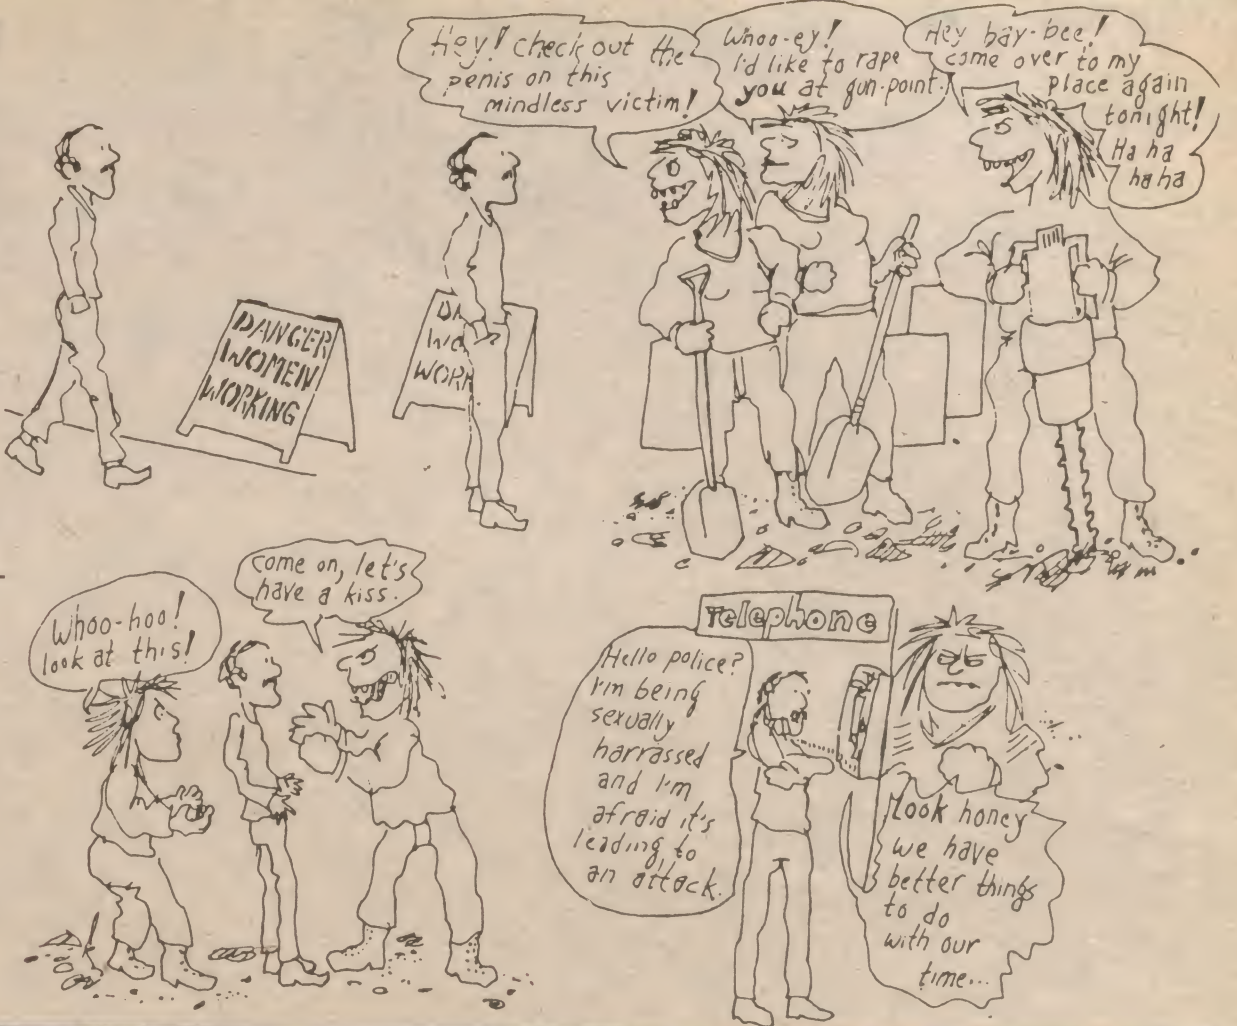 Hey! check out the
penis on this
mindless victim!
Whoo-ey!
I'd like to rape
you at gun-point.
Hey bay-bee!
come over to my
place again
tonight!
Ha ha
ha ha
DANGER
WOMEN
WORKING
DA
WO
WORK
Whoo-hoo!
look at this!
come on, let's
have a kiss.
Telephone
Hello police?
I'm being
sexually
harrassed
and I'm
afraid it's
leading to
an attack.
Look honey
we have
better things
to do
with our
time...